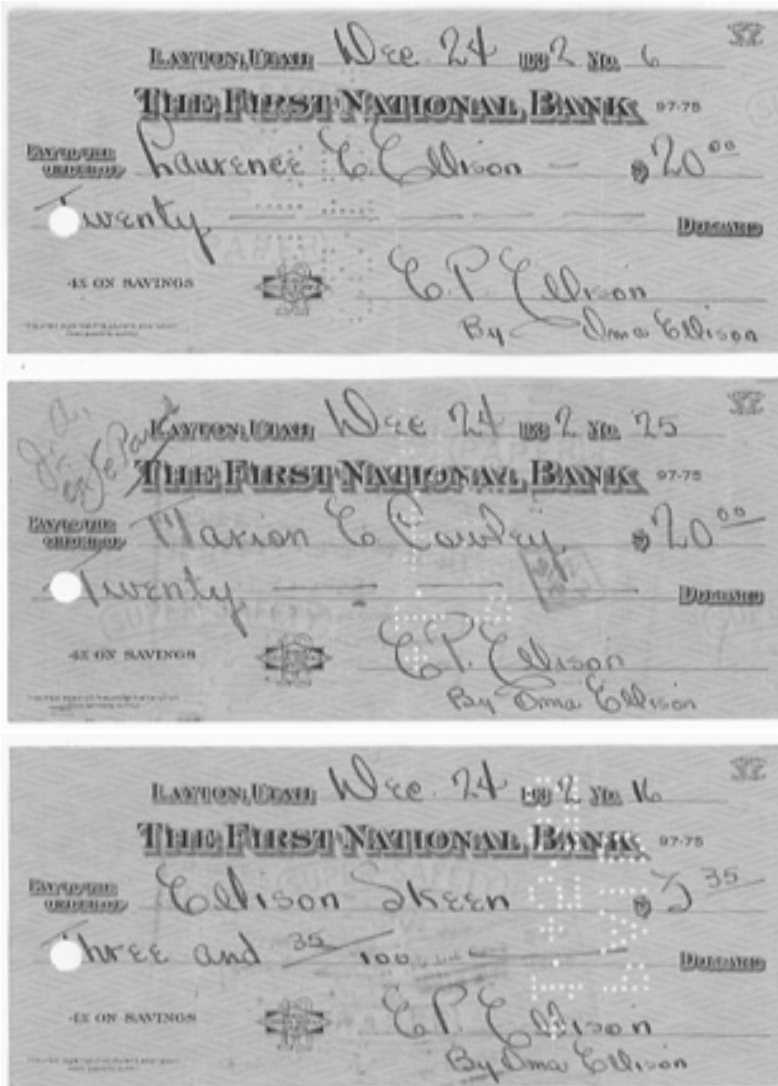 Layton, Utah Dec. 24 1932 No. 6
The First National Bank 97-75
Pay to the order of Laurence E. Ellison — $20.00
Twenty — — — — — Dollars
4% on Savings
E. P. Ellison
By Irma Ellison
Layton, Utah Dec 24 1932 No. 25
The First National Bank 97-75
Pay to the order of Marion E Cowley $20.00
Twenty — — — Dollars
Super Safety
4% on Savings
E.P. Ellison
By Irma Ellison
Layton, Utah Dec. 24 1932 No. 16
The First National Bank 97-75
Pay to the order of Ellison Skeen $3 35
Three and 35/100 — Dollars
Super Safety
4% on Savings
E.P. Ellison
By Irma Ellison